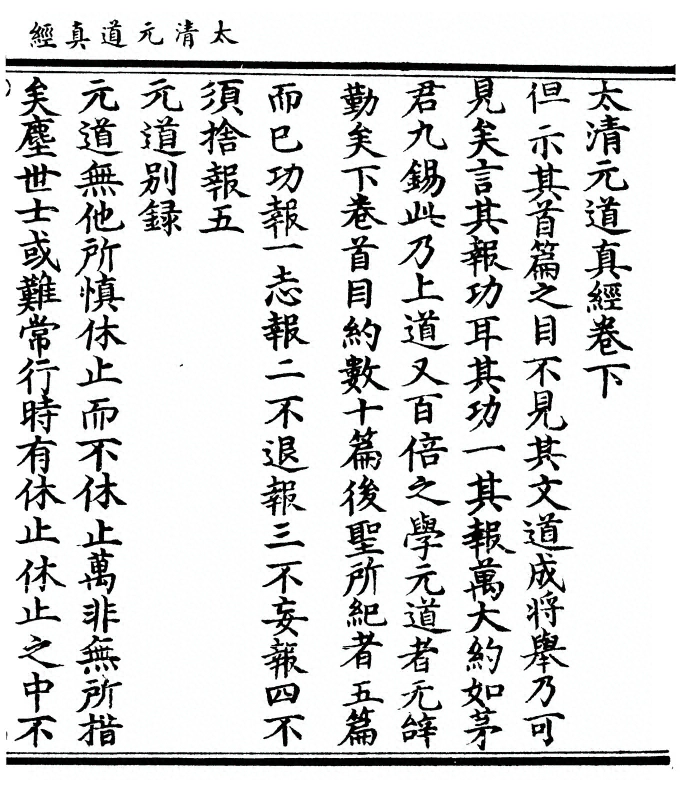 太清元道真經
太清元道真經卷下
但示其首篇之目不見其文道成將舉乃可
見矣言其報功耳其功一其報萬大約如茅
君九錫此乃上道又百倍之學元道者无辝
勤矣下卷首目約數十篇後聖所紀者五篇
而已功報一志報二不退報三不妄報四不
須捨報五
元道别録
元道無他所慎休止而不休止萬非無所措
矣塵世士或難常行時有休止休止之中不